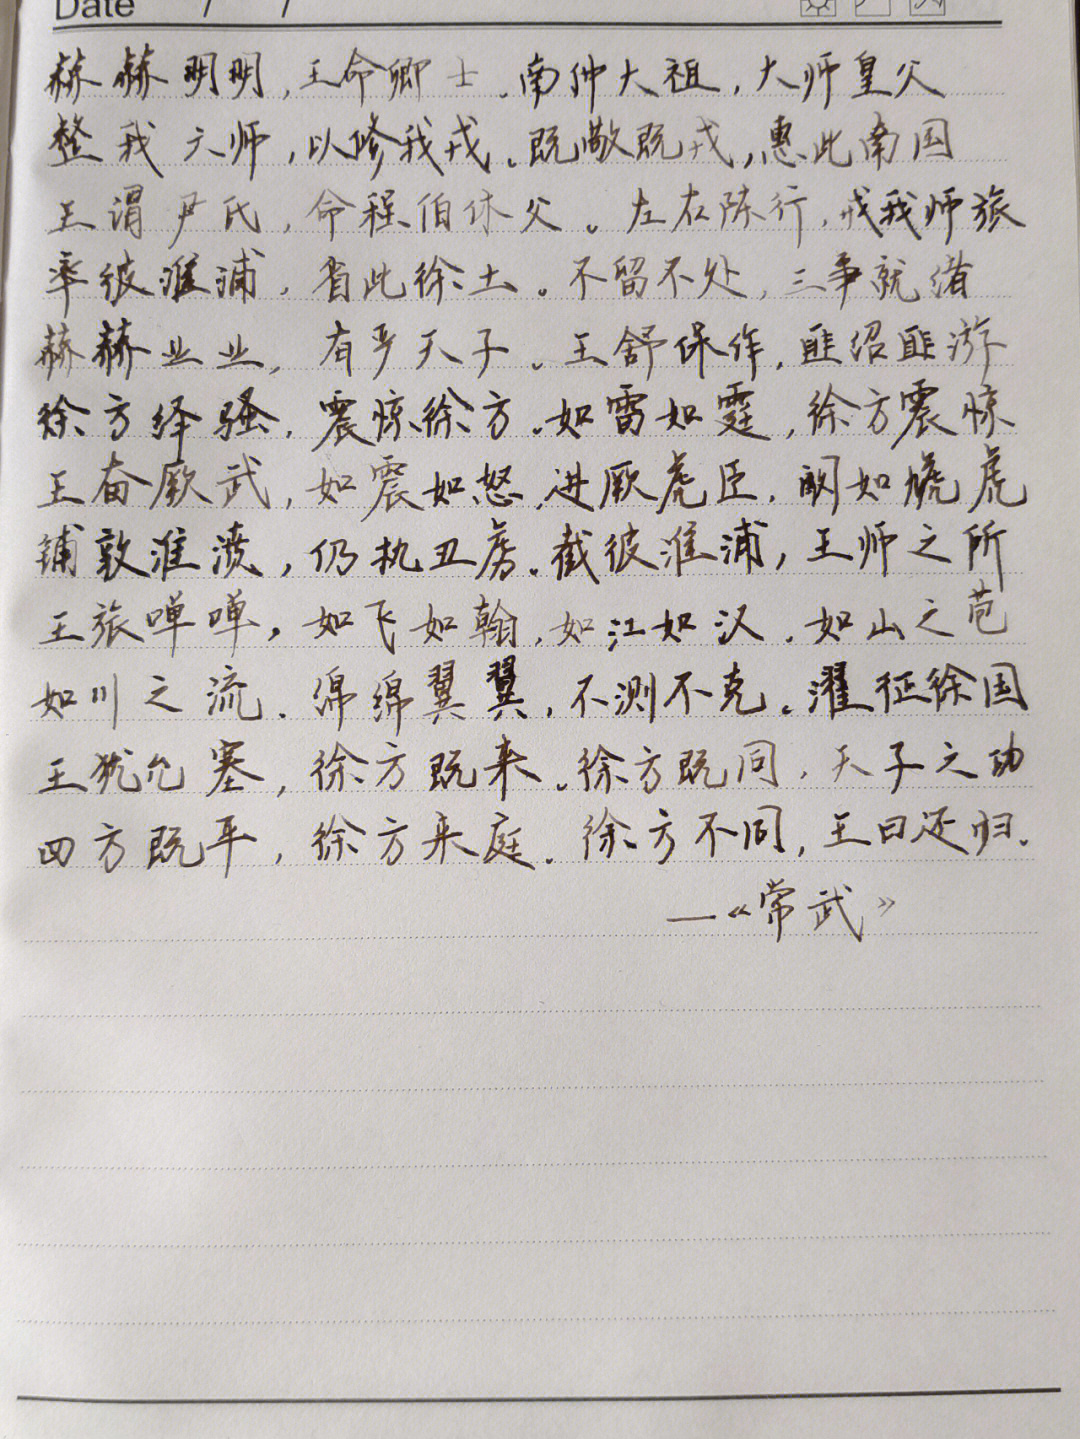 Date / /
赫赫明明,王命卿士.南仲大祖,大师皇父
整我六师,以修我戎.既敬既戎,惠此南国
王谓尹氏,命程伯休父。左右陈行,戒我师旅
率彼淮浦,省此徐土。不留不处,三事就绪
赫赫业业,有严天子.王舒保作,匪绍匪游
徐方绎骚,震惊徐方.如雷如霆,徐方震惊
王奋厥武,如震如怒.进厥虎臣,阚如虓虎
铺敦淮濆,仍执丑虏.截彼淮浦,王师之所
王旅啴啴,如飞如翰.如江如汉.如山之苞
如川之流.绵绵翼翼,不测不克.濯征徐国
王犹允塞,徐方既来.徐方既同,天子之功
四方既平,徐方来庭.徐方不同,王曰还归.
—《常武》